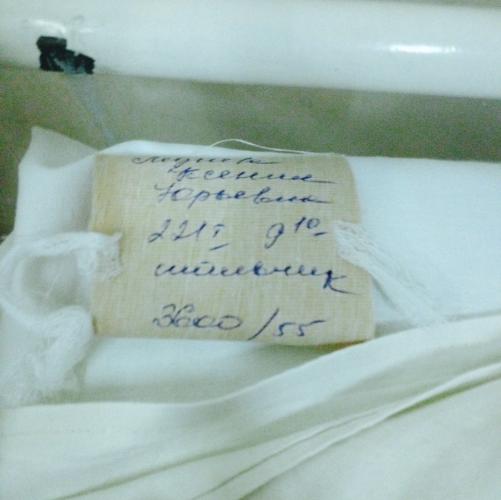 Ксения
Юрьевна
221 г 9 10
мальчик
3600/55